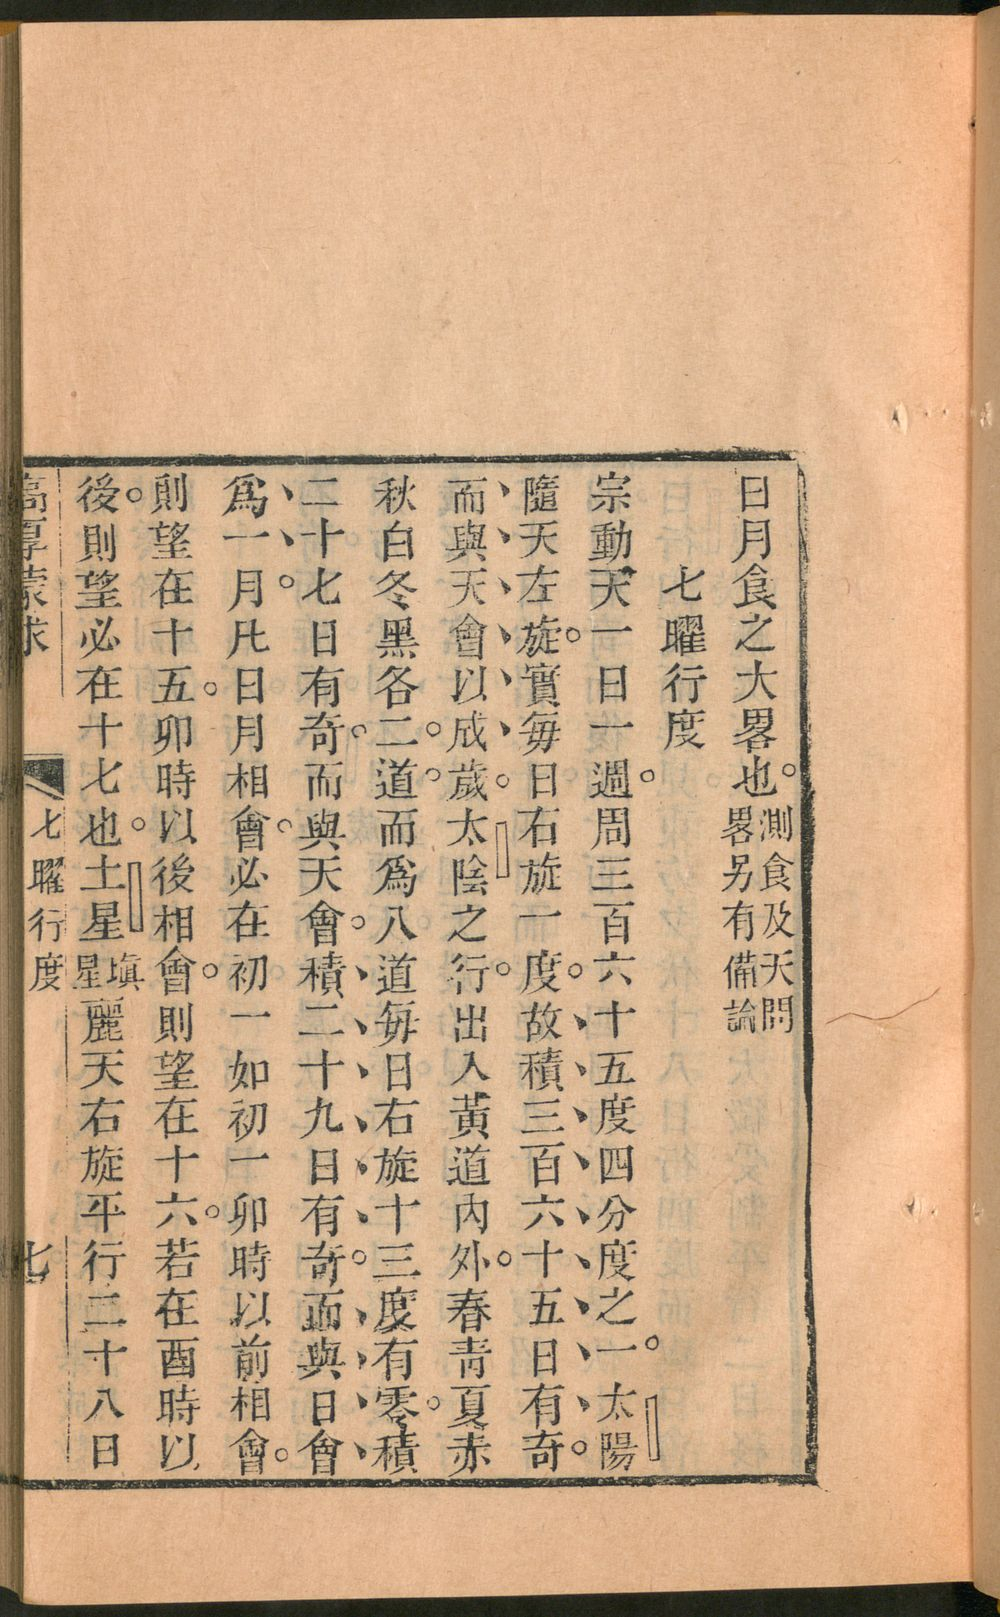 日月食之大畧也。測食及天問畧另有備論
七曜行度
宗動天一日一週。周三百六十五度四分度之一。太陽
隨天左旋。實每日右旋一度。故積三百六十五日有奇。
而與天會以成歲。太陰之行。出入黃道內外。春靑夏赤
秋白冬黑各二。道。而爲八道每日右旋十三度有零。積
二十七日有奇。而與天會。積二十九日有奇。而與日會
爲一月。凡日月相會。必在初一如初一卯時以前相會。
則望在十五。卯時以後相會。則望在十六。若在酉時以
後。則望必在十七也。土星塡星麗天右旋平行二十八日
高厚蒙求
七曜行度
七